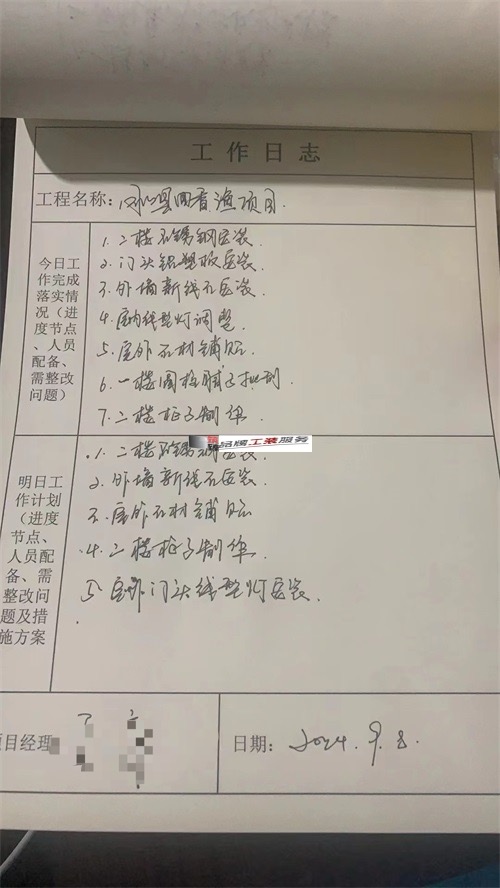 工作日志
工程名称：县四香渔项目.
今日工
作完成
落实情
况（进
度节点
、人员
配备、
需整改
问题）
1. 二楼不锈钢安装.
2. 门头铝塑板安装.
3. 外墙新线孔安装.
4. 屋内线型灯调整
5. 屋外石材铺贴
6. 一楼圆柱腻子批刮
7. 二楼柜子制作
品牌工装服务
明日工
作计划
（进度
节点、
人员配
备、需
整改问
题及措
施方案
1. 二楼不锈钢安装.
2. 外墙新线孔安装.
3. 屋外石材铺贴
4. 二楼柜子制作.
5. 屋外门头线型灯安装.
项目经理
日期：2024.9.8.